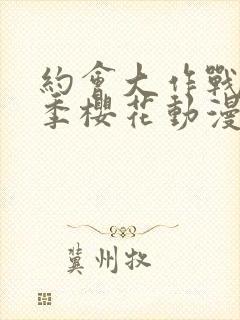 約會大作戰
季櫻花動漫
冀州牧